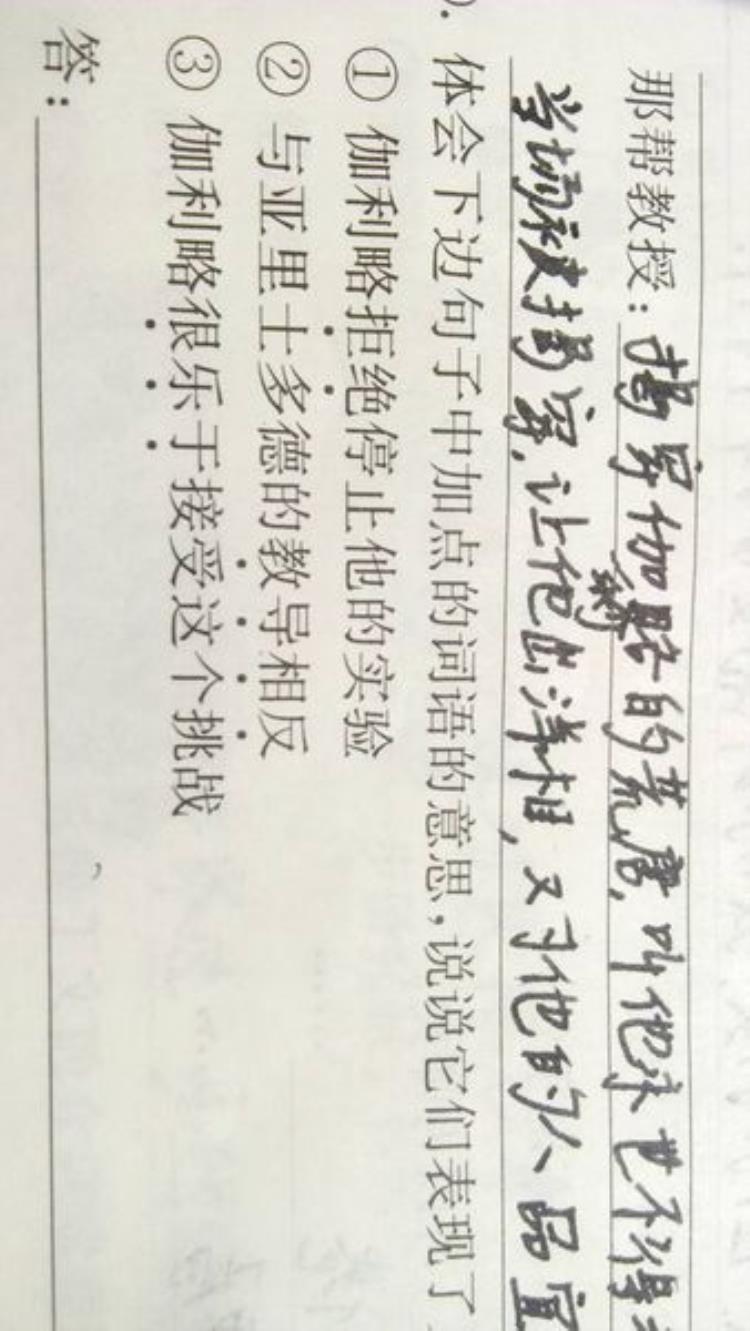 那帮教授：揭穿伽利略的荒唐，叫他永世不得
当场被揭穿，让他出洋相，又于他的人品宣
体会下边句子中加点的词语的意思，说说它们表现了
① 伽利略拒绝停止他的实验
② 与亚里士多德的教导相反
③ 伽利略很乐于接受这个挑战
答：